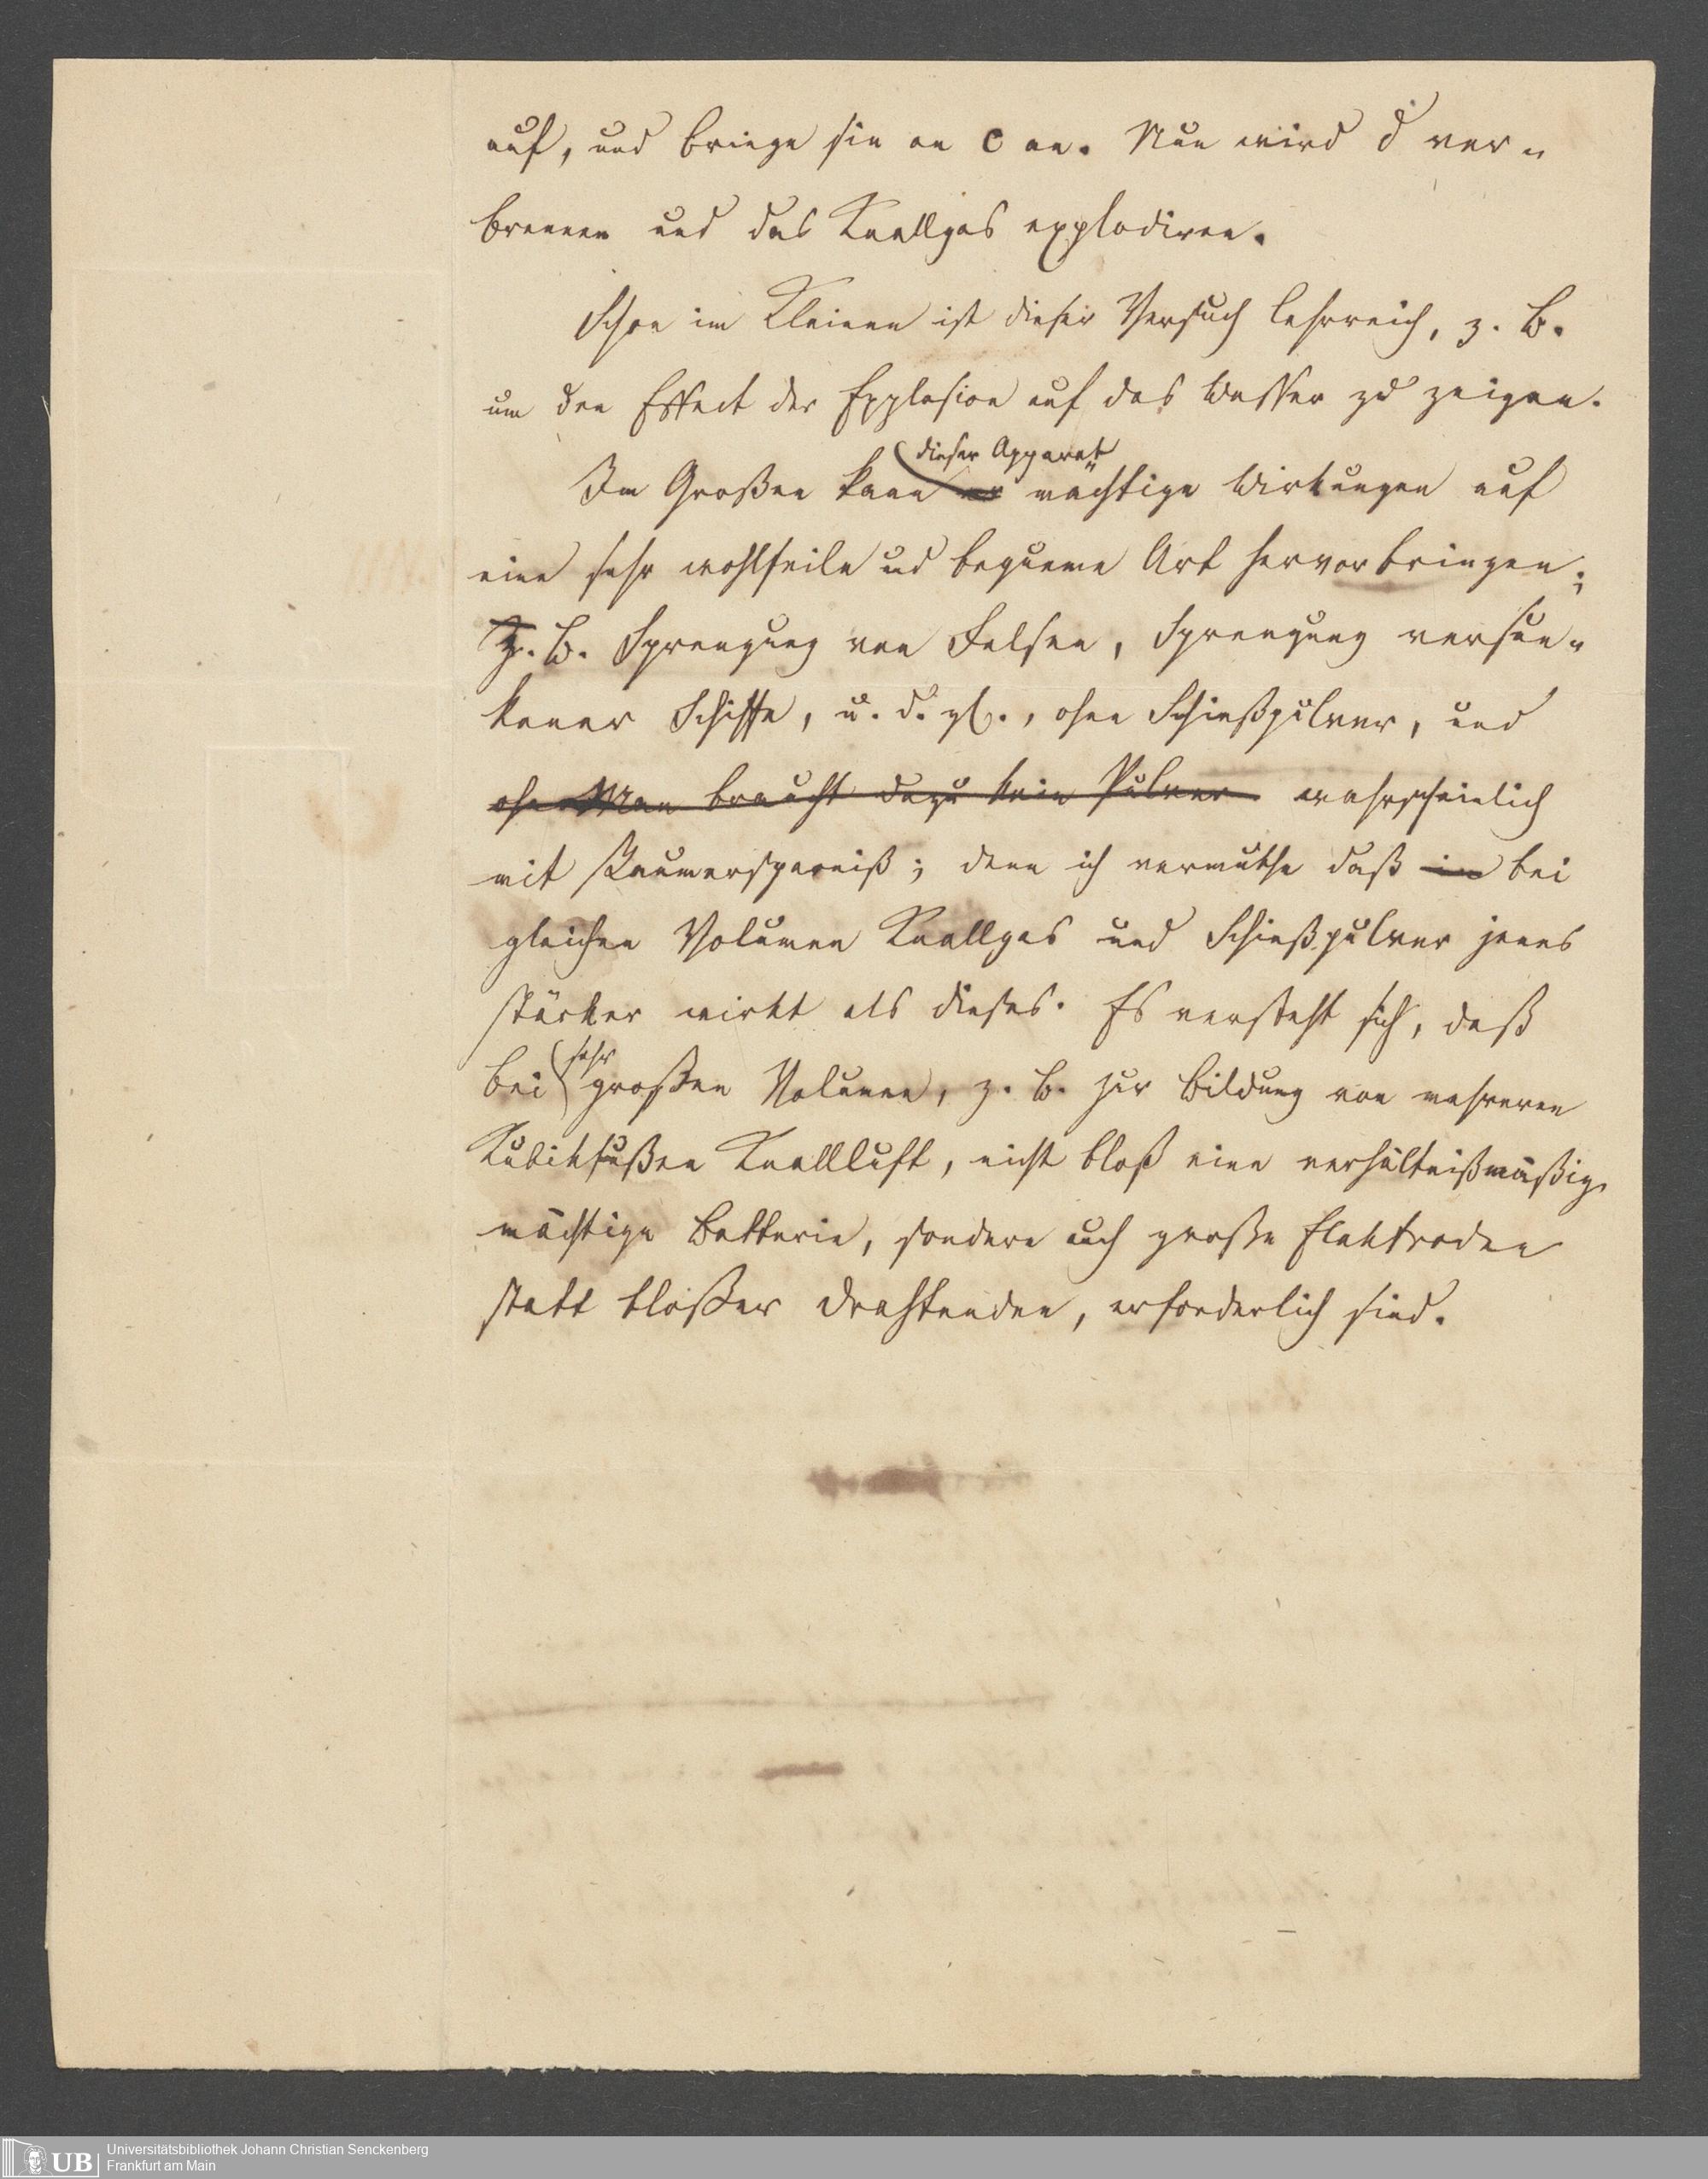 auf, und bringe sie an c an. Nun wird d ver-
brennen und das Knallgas explodiren.
Schon im Kleinen ist dieser Versuch lehrreich, z. B.
um den Effect der Explosion auf das Wasser zu zeigen.
dieser Apparat
Im Großen kann er mächtige Wirkungen auf
eine sehr wohlfeile und bequeme Art hervorbringen;
z. B. Sprengung von Felsen, Sprengung versun-
kener Schiffe, u. d. gl., ohne Schießpulver, und
ohne Man braucht dazu kein Pulver wahrscheinlich
mit Raumersparniß; denn ich vermuthe daß in bei
gleichen Volumen Knallgas und Schießpulver jenes
stärker wirkt als dieses. Es versteht sich, daß
sehr
bei großen Volumen, z. B. zur Bildung von mehreren
Kubikfußen Knallluft, nicht bloß eine verhältnißmäßig
mächtige Batterie, sondern auch große Elektroden
statt bloßer Drahtenden, erforderlich sind.
UB
Universitätsbibliothek Johann Christian Senckenberg
Frankfurt am Main